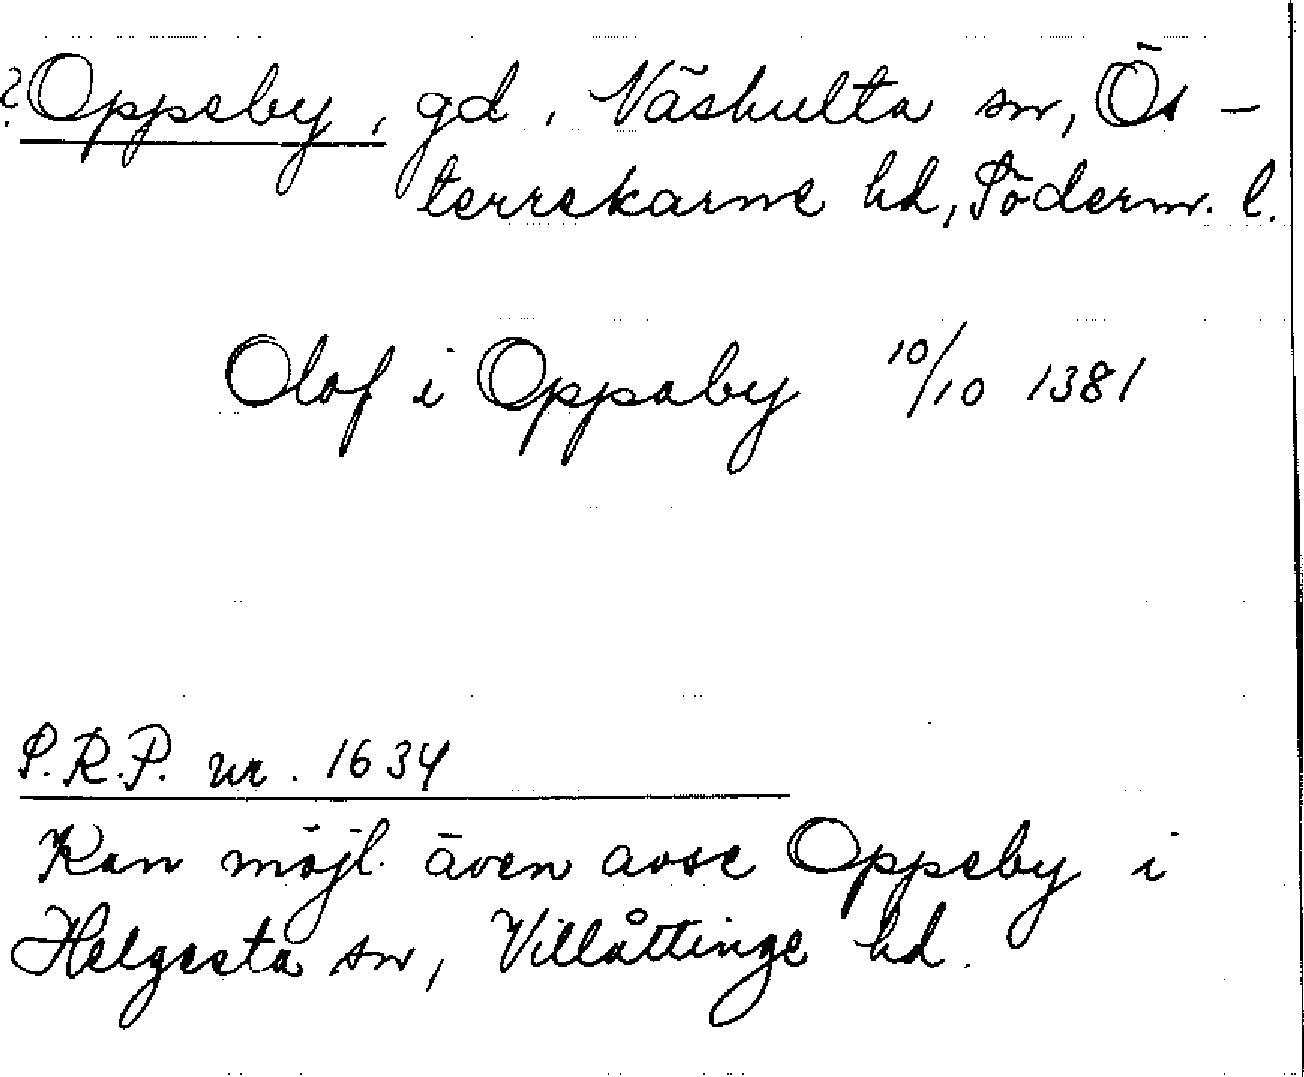 ? Oppeby, gd, Näshulta sn, Ös-
terrekarne hd, Söderm. l.
Olof i Oppaby 10/10 1381
S.R.P. nr. 1634
Kan möjl. även avse Oppeby i
Helgesta sn, Villåttinge hd.